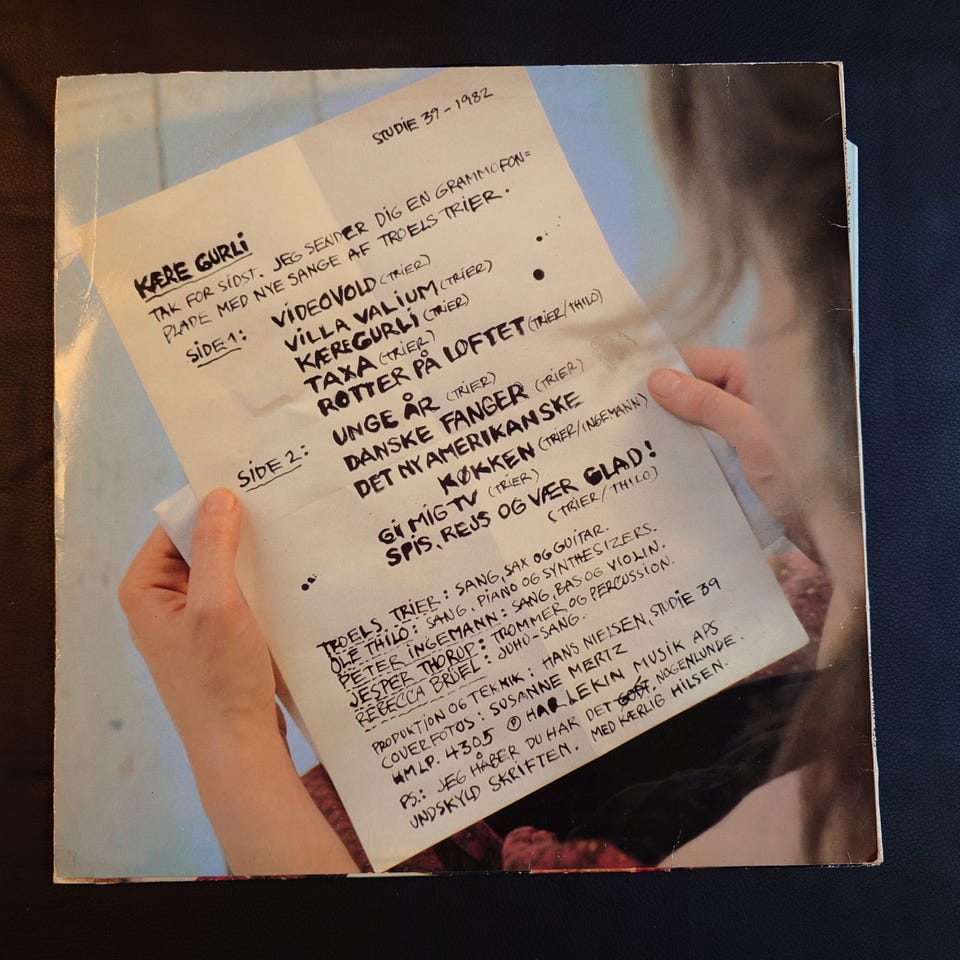 STUDIE 39 - 1982
KÆRE GURLI
TAK FOR SIDST. JEG SENDER DIG EN GRAMMOFON=
PLADE MED NYE SANGE AF TROELS TRIER.
SIDE 1: VIDEOVOLD (TRIER)
VILLA VALIUM (TRIER)
KÆRE GURLI (TRIER)
TAXA (TRIER)
ROTTER PÅ LOFTET (TRIER/THILO)
SIDE 2: UNGE ÅR (TRIER)
DANSKE FANGER (TRIER)
DET NY AMERIKANSKE
KØKKEN (TRIER/INGEMANN)
GI MIG TV (TRIER)
SPIS, REJS OG VÆR GLAD!
(TRIER/THILO)
TROELS TRIER: SANG, SAX OG GUITAR.
OLE THILO: SANG, PIANO OG SYNTHESIZERS.
PETER INGEMANN: SANG, BAS OG VIOLIN.
JESPER THORUP: TROMMER OG PERCUSSION.
REBECCA BRÜEL: JUHU-SANG.
PRODUKTION OG TEKNIK: HANS NIELSEN, STUDIE 39
COVERFOTOS: SUSANNE MERTZ
HMLP. 4305 ℗ HARLEKIN MUSIK APS
PS.: JEG HÅBER DU HAR DET GODT, NOGENLUNDE.
UNDSKYLD SKRIFTEN. MED KÆRLIG HILSEN.